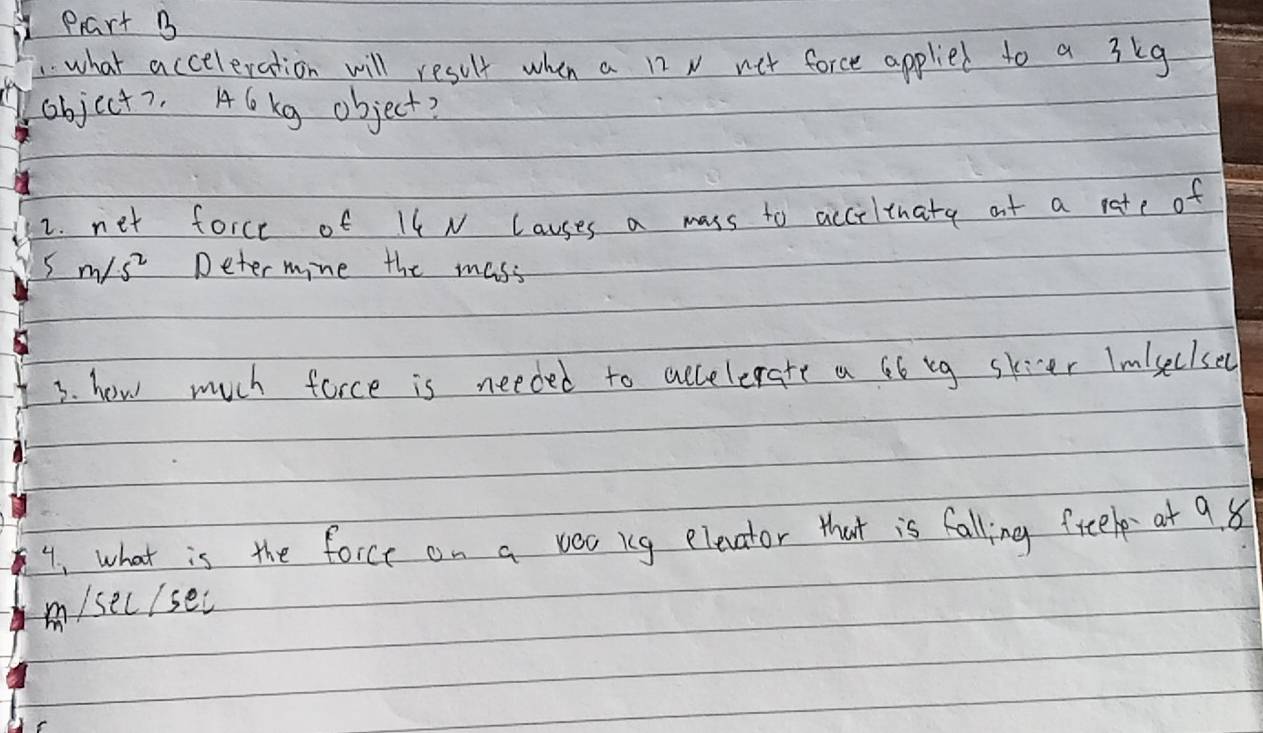 Prart B
1. what acceleration will result when a 12 N net force applied to a 3 kg
object?. A 6 kg object?
2. net force of 16 N causes a mass to at a rate of
5 m/s² Determine the mass
3. how much force is needed to accelerate a 66 kg 1m/sec/sec
4, what is the force on a kg elevator that is falling at 9.8
m/sec/sec